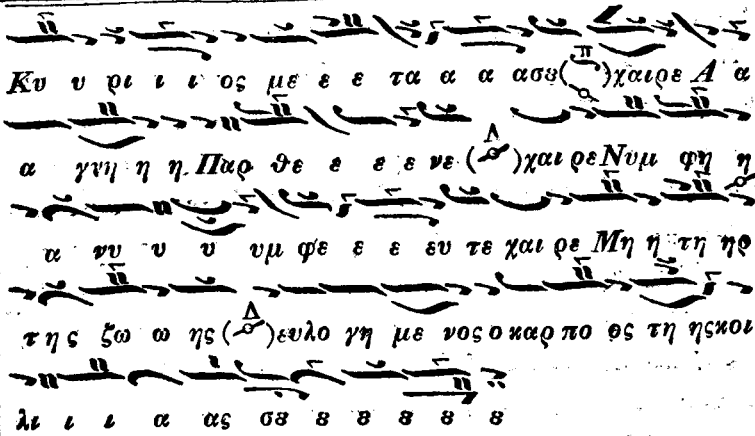 Κυ υ ρι ι ι ος με ε ε τα α α ασȣ (π) χαιρε Α α
α γνη η η Παρ θε ε ε ε νε (Δ) χαι ρε Νυμ φη η
α νυ υ υ υμ φε ε ε ευ τε χαι ρε Μη η τη ηρ
της ζω ω ης (Δ) ευλο γη με νος ο καρ πο ος τη ης κοι
λι ι ι α ας σȣ ȣ ȣ ȣ ȣ ȣ